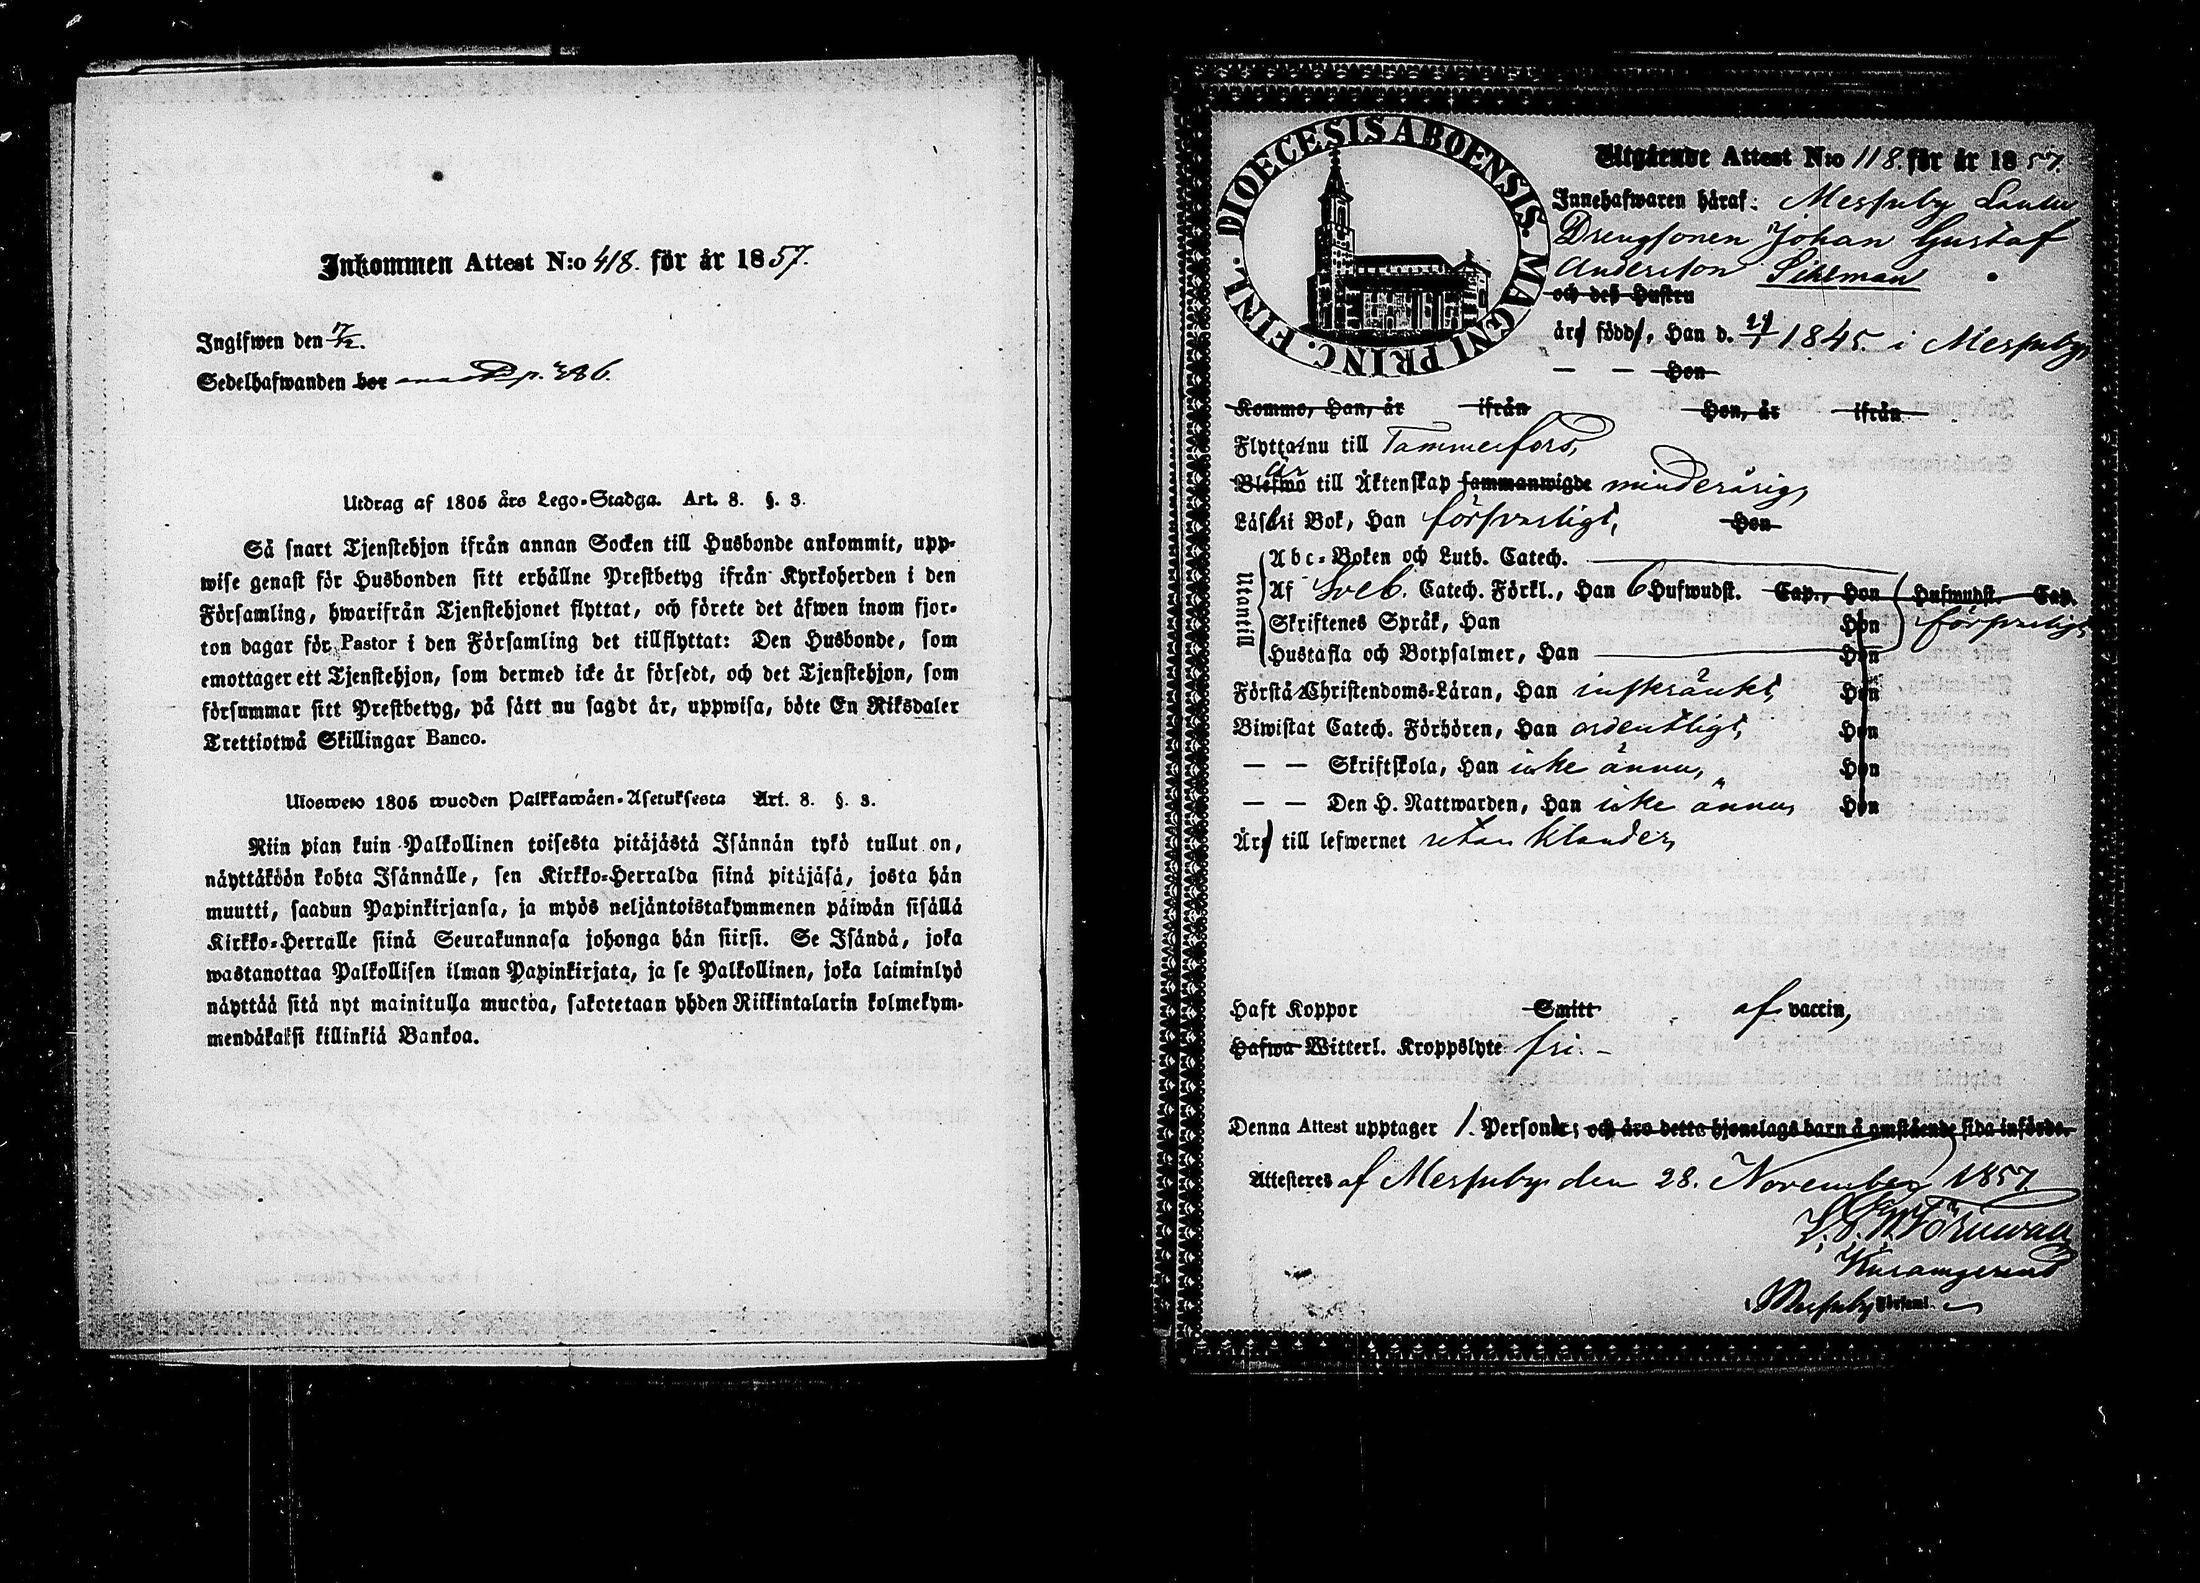 Inkommen Attest N:o 418. för år 1857.
Ingifwen den 7/12.
Sedelhafwanden bor p. 386.
Utdrag af 1805 års Lego-Stadga. Art. 8. §. 3.
Så snart Tjenstehjon ifrån annan Socken till Husbonde ankommit, upp-
wise genast för Husbonden sitt erhållne Prestbetyg ifrån Kyrkoherden i den
Församling, hwarifrån Tjenstehjonet flyttat, och förete det äfwen inom fjor-
ton dagar för Pastor i den Församling det tillflyttat: Den Husbonde, som
emottager ett Tjenstehjon, som dermed icke är försedt, och det Tjenstehjon, som
försummar sitt Prestbetyg, på sätt nu sagdt är, uppwisa, böte En Riksdaler
Trettiotwå Skillingar Banco.
Ulosweto 1805 wuoden Palkkawäen-Asetuksesta Art. 8. §. 3.
Niin pian kuin Palkollinen toisesta pitäjästä Isännän tykö tullut on,
näyttäköön kohta Isännälle, sen Kirkko-Herralda siinä pitäjäsä, josta hän
muutti, saadun Papinkirjansa, ja myös neljäntoistakymmenen päiwän sisällä
Kirkko-Herralle siinä Seurakunnasa johonga hän siirsi. Se Isändä, joka
wastanottaa Palkollisen ilman Papinkirjata, ja se Palkollinen, joka laiminlyö
näyttää sitä nyt mainitulla muotoa, saketetaan yhden Riikintalarin kolmekym-
mendäkaksi killinkiä Bankoa.
DIOECESIS ABOENSIS. MAGNI PRINC. FINL.
Utgående Attest N:o 118. för år 1857.
Innehafwaren häraf: Messuby
Drengsonen Johan Gustaf
Andersson Sihlman
och deß Hustru
äro född, Han d. 1845. i Messuby,
— — Hon
Kommo, Han, år ifrån Hon, år ifrån
Flyttar nu till Tammerfors,
är
Blefwo till Äktenskap sammanwigde minderårig,
Läser i Bok, Han försvarligt, Hon
Utantill
Abc-Boken och Luth. Catech.
Af Sveb. Catech. Förkl., Han 6 Hufwudst. Cap., Hon Hufwudst. Cap.
Skriftenes Språk, Han Hon försvarligt
Hustafla och Botpsalmer, Han Hon
Förstår Christendoms-Läran, Han inskränkt, Hon
Biwistat Catech. Förhören, Han ordentligt, Hon
— — Skriftskola, Han icke ännu, Hon
— — Den H. Nattwarden, Han icke ännu, Hon
Är till lefwernet utan klander,
Haft Koppor Smitt af vaccin,
Hafwa Witterl. Kroppslyte fri. –
Denna Attest upptager 1. Person; och äro detta hjonelags barn å omstående sida införde.
Attesteres af Messuby den 28. November 1857.
Törnewall
i Messuby Församl.